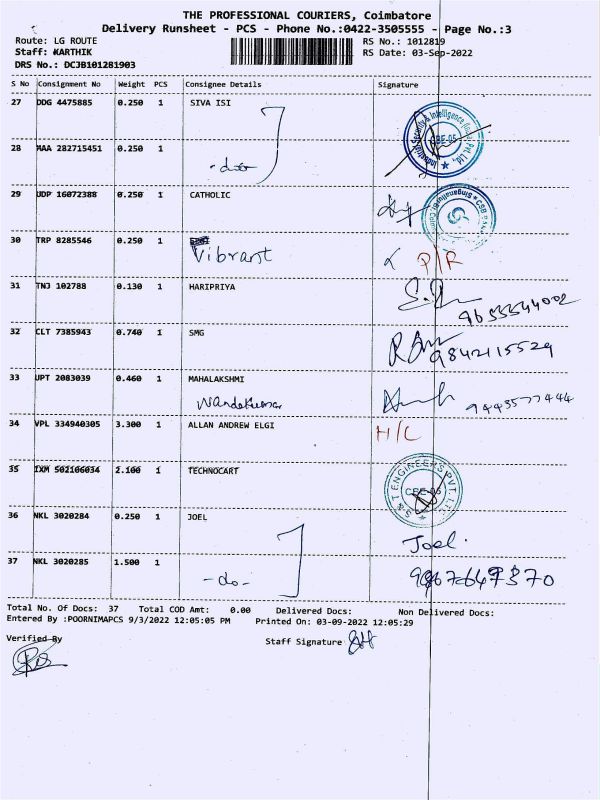 THE PROFESSIONAL COURIERS, Coimbatore
Delivery Runsheet - PCS - Phone No.:0422-3505555 - Page No.:3
Route: LG ROUTE RS No.: 1012819
Staff: KARTHIK RS Date: 03-Sep-2022
DRS No.: DCJB101281903
S No Consignment No Weight PCS Consignee Details Signature
27 DDG 4475885 0.250 1 SIVA ISI
28 MAA 282715451 0.250 1
-do-
29 UDP 16072388 0.250 1 CATHOLIC
30 TRP 8285546 0.250 1
Vibrant P/R
31 TNJ 102788 0.130 1 HARIPRIYA
32 CLT 7385943 0.740 1 SMG
9842115529
33 UPT 2083039 0.460 1 MAHALAKSHMI
Nandakumar 9443577444
34 VPL 334940305 3.300 1 ALLAN ANDREW ELGI
H/C
35 IXM 502106034 2.100 1 TECHNOCART
S & T ENGINEERS PVT. LTD.
CBE-05
36 NKL 3020284 0.250 1 JOEL
Joel.
37 NKL 3020285 1.500 1
-do-
Total No. Of Docs: 37 Total COD Amt: 0.00 Delivered Docs: Non Delivered Docs:
Entered By :POORNIMAPCS 9/3/2022 12:05:05 PM Printed On: 03-09-2022 12:05:29
Verified By Staff Signature